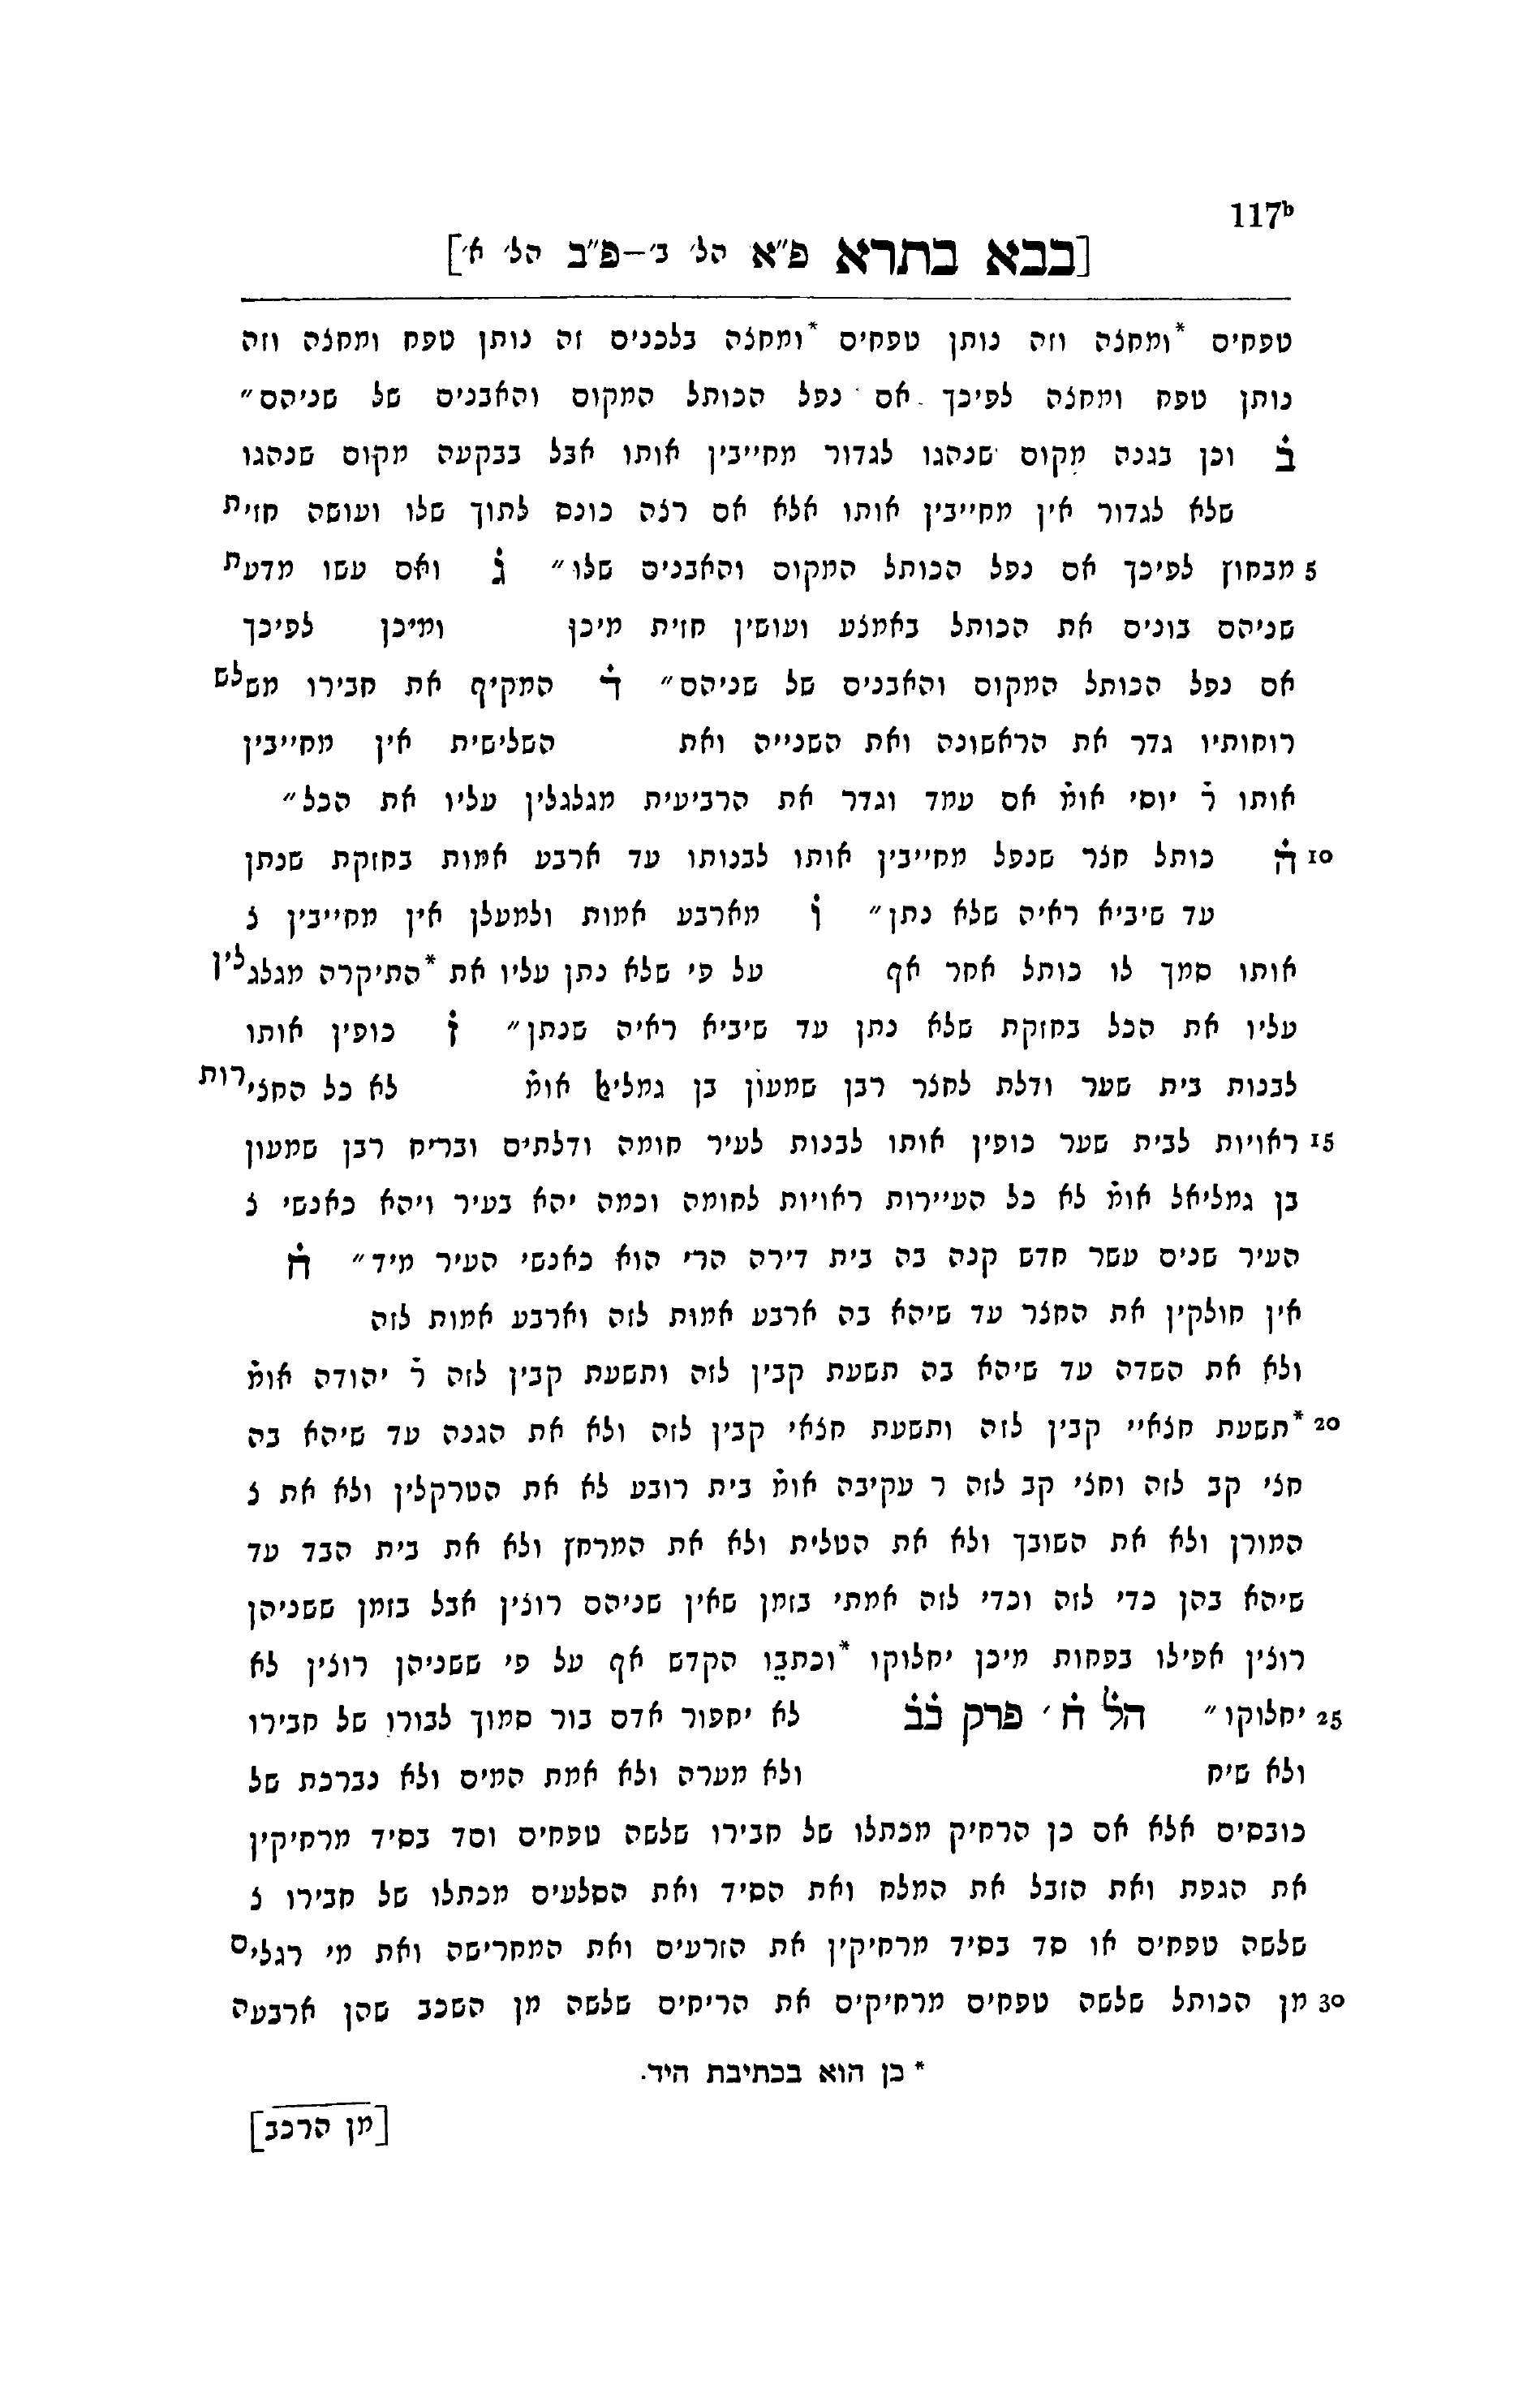 117b
[בבא בתרא פ״א הל׳ ב׳—פ״ב הל׳ א׳]
טפחים *ומחצה וזה נותן טפחים *ומחצה בלבנים זה נותן טפח ומחצה וזה
נותן טפח ומחצה לפיכך אם נפל הכותל המקום והאבנים של שניהם״
ב וכן בגנה מקום שנהגו לגדור מחייבין אותו אבל בבקעה מקום שנהגו
שלא לגדור אין מחייבין אותו אלא אם רצה כונס לתוך שלו ועושה חזית
5 מבחוץ לפיכך אם נפל הכותל המקום והאבנים שלו״ ג ואם עשו מדעת
שניהם בונים את הכותל באמצע ועושין חזית מיכן ומיכן לפיכך
אם נפל הכותל המקום והאבנים של שניהם״ ד המקיף את חבירו משלש
רוחותיו גדר את הראשונה ואת השנייה ואת השלישית אין מחייבין
אותו ר̇ יוסי אומ̇ אם עמד וגדר את הרביעית מגלגלין עליו את הכל״
10 ה כותל חצר שנפל מחייבין אותו לבנותו עד ארבע אמות בחזקת שנתן
עד שיביא ראיה שלא נתן״ ו מארבע אמות ולמעלן אין מחייבין צ
אותו סמך לו כותל אחר אף על פי שלא נתן עליו את *התיקרה מגלגלין
עליו את הכל בחזקת שלא נתן עד שיביא ראיה שנתן״ ז כופין אותו
לבנות בית שער ודלת לחצר רבן שמעון בן גמליאל אומ̇ לא כל החצירות
15 ראויות לבית שער כופין אותו לבנות לעיר חומה ודלתים ובריח רבן שמעון
בן גמליאל אומ̇ לא כל העיירות ראויות לחומה וכמה יהא בעיר ויהא כאנשי צ
העיר שנים עשר חדש קנה בה בית דירה הרי הוא כאנשי העיר מיד״ ח
אין חולקין את החצר עד שיהא בה ארבע אמות לזה וארבע אמות לזה
ולא את השדה עד שיהא בה תשעת קבין לזה ותשעת קבין לזה ר̇ יהודה אומ̇
20 *תשעת חצאיי קבין לזה ותשעת חצאי קבין לזה ולא את הגנה עד שיהא בה
חצי קב לזה וחצי קב לזה ר עקיבה אומ̇ בית רובע לא את הטרקלין ולא את צ
המורן ולא את השובך ולא את הטלית ולא את המרחץ ולא את בית הבד עד
שיהא בהן כדי לזה וכדי לזה אמתי בזמן שאין שניהם רוצין אבל בזמן ששניהן
רוצין אפילו בפחות מיכן יחלוקו *וכתבו הקדש אף על פי ששניהן רוצין לא
25 יחלוקו״ הל ח׳ פרק בֿבֿ לא יחפור אדם בור סמוך לבורו של חבירו
ולא שיח ולא מערה ולא אמת המים ולא נברכת של
כובסים אלא אם כן הרחיק מכתלו של חבירו שלשה טפחים וסד בסיד מרחיקין
את הגפת ואת הזבל את המלח ואת הסיד ואת הסלעים מכתלו של חבירו צ
שלשה טפחים או סד בסיד מרחיקין את הזרעים ואת המחרישה ואת מי רגלים
30 מן הכותל שלשה טפחים מרחיקים את הריחים שלשה מן השכב שהן ארבעה
* כן הוא בכתיבת היד.
[מן הרכב]